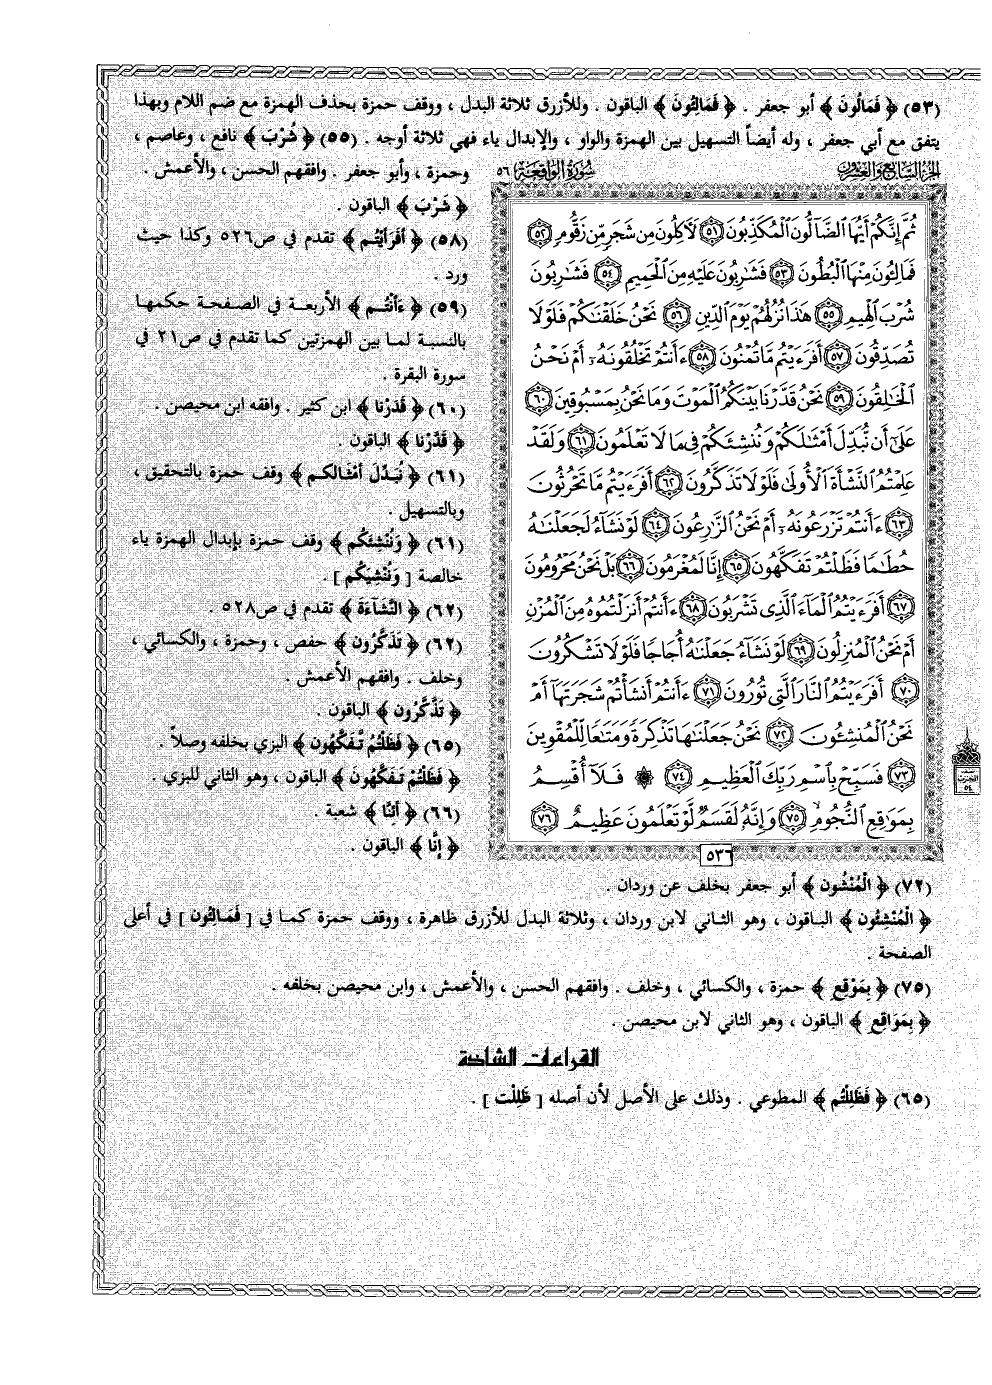 (٥٣) ﴿ فَمَالُونَ ﴾ أبو جعفر . ﴿ فَمَالِئُونَ ﴾ الباقون . وللأزرق ثلاثة البدل ، ووقف حمزة بحذف الهمزة مع ضم اللام وبهذا
يتفق مع أبي جعفر ، وله أيضاً التسهيل بين الهمزة والواو ، والإبدال ياء فهي ثلاثة أوجه . (٥٥) ﴿ شُرْبَ ﴾ نافع ، وعاصم ،
وحمزة ، وأبو جعفر . وافقهم الحسن ، والأعمش .
﴿ شَرْبَ ﴾ الباقون .
(٥٨) ﴿ أَفَرَأَيْتُم ﴾ تقدم في ص٥٢٦ وكذا حيث
ورد .
(٥٩) ﴿ ءَأَنْتُم ﴾ الأربعة في الصفحة حكمها
بالنسبة لما بين الهمزتين كما تقدم في ص٢١ في
سورة البقرة .
(٦٠) ﴿ قَدَرْنا ﴾ ابن كثير . وافقه ابن محيصن .
﴿ قَدَّرْنا ﴾ الباقون .
(٦١) ﴿ نُبَدِّلَ أَمْثَالَكم ﴾ وقف حمزة بالتحقيق ،
وبالتسهيل .
(٦١) ﴿ وَنُنْشِئَكُم ﴾ وقف حمزة بإبدال الهمزة ياء
خالصة [ وَنُنْشِيَكُم ] .
(٦٢) ﴿ النَّشَاءَةَ ﴾ تقدم في ص٥٢٨ .
(٦٢) ﴿ تَذَكَّرُون ﴾ حفص ، وحمزة ، والكسائي ،
وخلف . وافقهم الأعمش .
﴿ تَذَّكَّرُون ﴾ الباقون .
(٦٥) ﴿ فَظَلْتُمُ تَّفَكَّهُون ﴾ البزي بخلفه وصلاً .
﴿ فَظَلْتُمْ تَفَكَّهُونَ ﴾ الباقون ، وهو الثاني للبزي .
(٦٦) ﴿ أَئِنَّا ﴾ شعبة .
﴿ إِنَّا ﴾ الباقون .
الجزء السابع والعشرون
سورة الواقعة ٥٦
ثُمَّ إِنَّكُمْ أَيُّهَا ٱلضَّآلُّونَ ٱلْمُكَذِّبُونَ ٥١ لَءَاكِلُونَ مِن شَجَرٍ مِّن زَقُّومٍ ٥٢
فَمَالِـُٔونَ مِنْهَا ٱلْبُطُونَ ٥٣ فَشَٰرِبُونَ عَلَيْهِ مِنَ ٱلْحَمِيمِ ٥٤ فَشَٰرِبُونَ
شُرْبَ ٱلْهِيمِ ٥٥ هَٰذَا نُزُلُهُمْ يَوْمَ ٱلدِّينِ ٥٦ نَحْنُ خَلَقْنَٰكُمْ فَلَوْلَا
تُصَدِّقُونَ ٥٧ أَفَرَءَيْتُم مَّا تُمْنُونَ ٥٨ ءَأَنتُمْ تَخْلُقُونَهُۥٓ أَمْ نَحْنُ
ٱلْخَٰلِقُونَ ٥٩ نَحْنُ قَدَّرْنَا بَيْنَكُمُ ٱلْمَوْتَ وَمَا نَحْنُ بِمَسْبُوقِينَ ٦٠
عَلَىٰٓ أَن نُّبَدِّلَ أَمْثَٰلَكُمْ وَنُنشِئَكُمْ فِى مَا لَا تَعْلَمُونَ ٦١ وَلَقَدْ
عَلِمْتُمُ ٱلنَّشْأَةَ ٱلْأُولَىٰ فَلَوْلَا تَذَكَّرُونَ ٦٢ أَفَرَءَيْتُم مَّا تَحْرُثُونَ
٦٣ ءَأَنتُمْ تَزْرَعُونَهُۥٓ أَمْ نَحْنُ ٱلزَّٰرِعُونَ ٦٤ لَوْ نَشَآءُ لَجَعَلْنَٰهُ
حُطَٰمًا فَظَلْتُمْ تَفَكَّهُونَ ٦٥ إِنَّا لَمُغْرَمُونَ ٦٦ بَلْ نَحْنُ مَحْرُومُونَ
٦٧ أَفَرَءَيْتُمُ ٱلْمَآءَ ٱلَّذِى تَشْرَبُونَ ٦٨ ءَأَنتُمْ أَنزَلْتُمُوهُ مِنَ ٱلْمُزْنِ
أَمْ نَحْنُ ٱلْمُنزِلُونَ ٦٩ لَوْ نَشَآءُ جَعَلْنَٰهُ أُجَاجًا فَلَوْلَا تَشْكُرُونَ
٧٠ أَفَرَءَيْتُمُ ٱلنَّارَ ٱلَّتِى تُورُونَ ٧١ ءَأَنتُمْ أَنشَأْتُمْ شَجَرَتَهَآ أَمْ
نَحْنُ ٱلْمُنشِـُٔونَ ٧٢ نَحْنُ جَعَلْنَٰهَا تَذْكِرَةً وَمَتَٰعًا لِّلْمُقْوِينَ
٧٣ فَسَبِّحْ بِٱسْمِ رَبِّكَ ٱلْعَظِيمِ ٧٤ ۞ فَلَآ أُقْسِمُ
بِمَوَٰقِعِ ٱلنُّجُومِ ٧٥ وَإِنَّهُۥ لَقَسَمٌ لَّوْ تَعْلَمُونَ عَظِيمٌ ٧٦
٥٣٦
نصف
الحزب
٥٤
(٧٢) ﴿ الْمُنْشُون ﴾ أبو جعفر بخلف عن وردان .
﴿ الْمُنْشِئُون ﴾ الباقون ، وهو الثاني لابن وردان ، وثلاثة البدل للأزرق ظاهرة ، ووقف حمزة كما في [ فَمَالِئُون ] في أعلى
الصفحة .
(٧٥) ﴿ بِمَوْقِعِ ﴾ حمزة ، والكسائي ، وخلف . وافقهم الحسن ، والأعمش ، وابن محيصن بخلفه .
﴿ بِمَوَاقِعِ ﴾ الباقون ، وهو الثاني لابن محيصن .
القراءات الشاذة
(٦٥) ﴿ فَظَلِلْتُم ﴾ المطوعي . وذلك على الأصل لأن أصله [ ظَلِلْت ] .